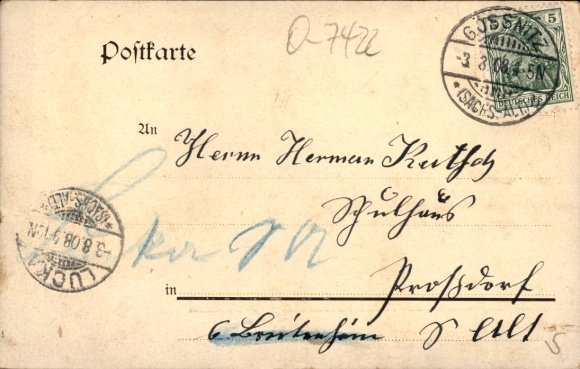 Postkarte
O-7422
GÖSSNITZ
-3.8.08.4-5N
*(SACHS.-ALT.)*
5
DEUTSCHES REICH
An
Herrn Herman Kutsch
Schulhaus
LUCKA
-3.8.08.9-12N.
*(SACHS-ALT)*
in Proßdorf
S Alt